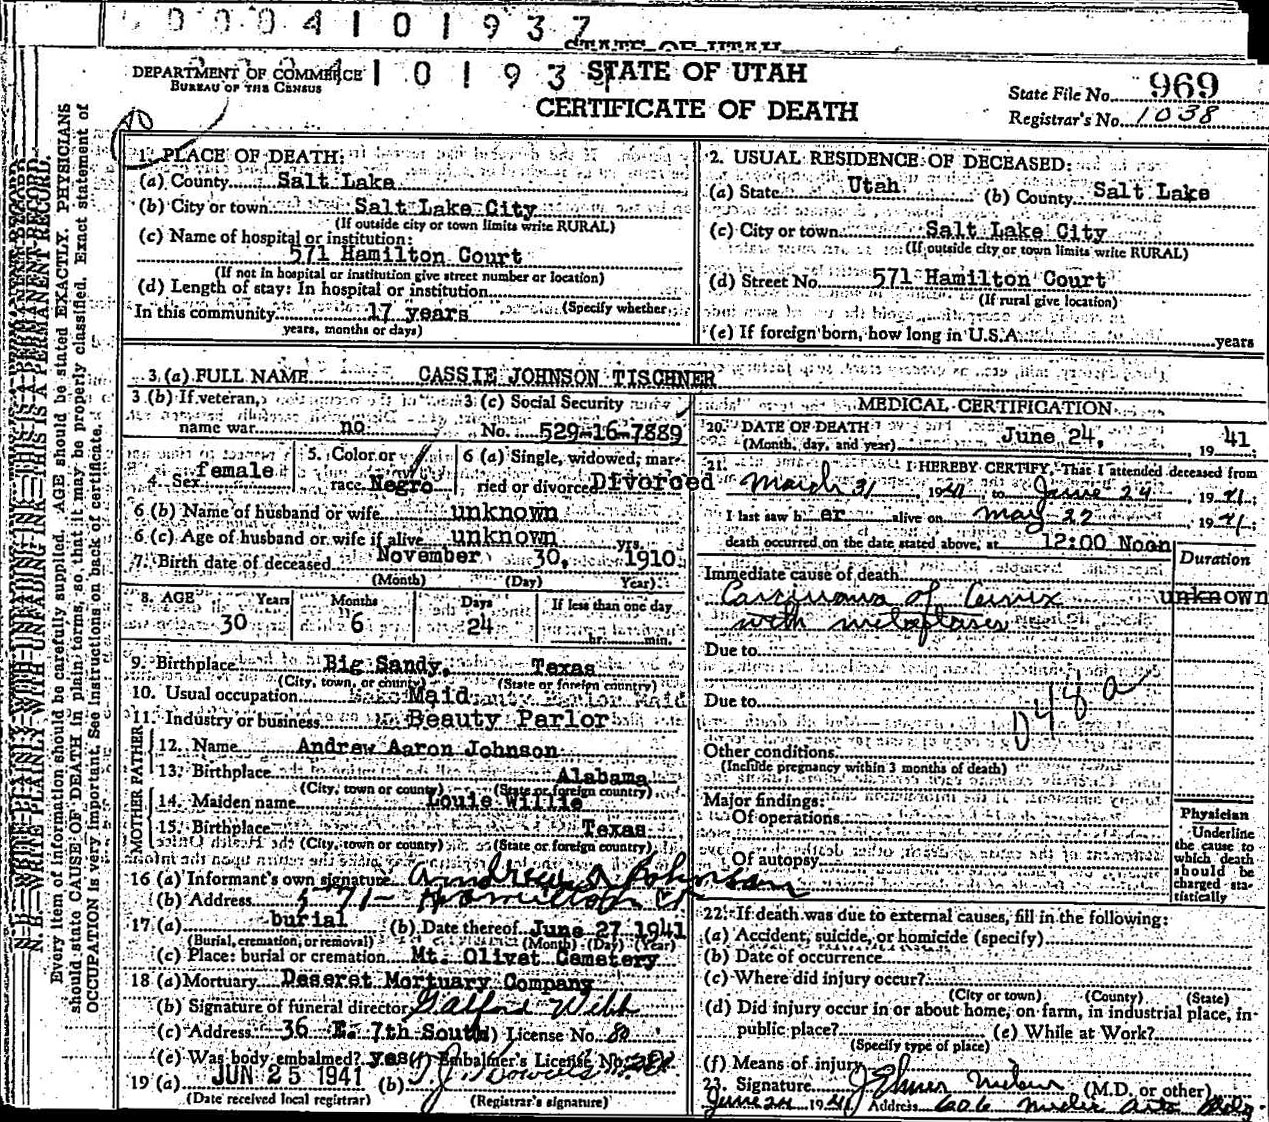 0004101937
STATE OF UTAH
DEPARTMENT OF COMMERCE
BUREAU OF THE CENSUS
4101937
STATE OF UTAH
CERTIFICATE OF DEATH
State File No. 969
Registrar's No. 1038
N. B.—WRITE PLAINLY WITH UNFADING INK—THIS IS A PERMANENT RECORD.
Every item of information should be carefully supplied. AGE should be stated EXACTLY. PHYSICIANS
should state CAUSE OF DEATH in plain terms, so that it may be properly classified. Exact statement of
OCCUPATION is very important. See instructions on back of certificate.
1. PLACE OF DEATH:
(a) County Salt Lake
(b) City or town Salt Lake City
(If outside city or town limits write RURAL)
(c) Name of hospital or institution:
571 Hamilton Court
(If not in hospital or institution give street number or location)
(d) Length of stay: In hospital or institution
(Specify whether
In this community 17 years
years, months or days)
2. USUAL RESIDENCE OF DECEASED:
(a) State Utah (b) County Salt Lake
(c) City or town Salt Lake City
(If outside city or town limits write RURAL)
(d) Street No. 571 Hamilton Court
(If rural give location)
(e) If foreign born, how long in U.S.A. years
3. (a) FULL NAME CASSIE JOHNSON TISCHNER
3 (b) If veteran, name war no
3 (c) Social Security No. 529-16-7889
4. Sex female
5. Color or race Negro
6 (a) Single, widowed, married or divorced Divorced
6 (b) Name of husband or wife unknown
6 (c) Age of husband or wife if alive unknown yrs.
7. Birth date of deceased November 30, 1910
(Month) (Day) (Year)
8. AGE Years Months Days If less than one day
30 6 24 hr. min.
9. Birthplace Big Sandy, Texas
(City, town, or county) (State or foreign country)
10. Usual occupation Maid
11. Industry or business Beauty Parlor
FATHER
12. Name Andrew Aaron Johnson
13. Birthplace Alabama
(City, town or county) (State or foreign country)
MOTHER
14. Maiden name Louie Willie
15. Birthplace Texas
(City, town or county) (State or foreign country)
16 (a) Informant's own signature Andrew A Johnson
(b) Address 571 - Hamilton Ct
17 (a) burial (b) Date thereof June 27 1941
(Burial, cremation, or removal) (Month) (Day) (Year)
(c) Place: burial or cremation Mt. Olivet Cemetery
18 (a) Mortuary Deseret Mortuary Company
(b) Signature of funeral director Galford Webb
(c) Address 36 E. 7th South (d) License No. 80
(e) Was body embalmed? yes (f) Embalmer's License No.
19 (a) JUN 25 1941 (b)
(Date received local registrar) (Registrar's signature)
MEDICAL CERTIFICATION
20. DATE OF DEATH
(Month, day, and year) June 24, 1941
21. I HEREBY CERTIFY, That I attended deceased from
March 31, 1941, to June 24, 1941;
I last saw her alive on May 22, 1941;
death occurred on the date stated above, at 12:00 Noon
Duration
Immediate cause of death
Carcinoma of Cervix unknown
with
Due to
Due to
D48a
Other conditions
(Include pregnancy within 3 months of death)
Major findings:
Of operations
Of autopsy
Physician
Underline
the cause to
which death
should be
charged statistically
22. If death was due to external causes, fill in the following:
(a) Accident, suicide, or homicide (specify)
(b) Date of occurrence
(c) Where did injury occur?
(City or town) (County) (State)
(d) Did injury occur in or about home, on farm, in industrial place, in
public place? (e) While at Work?
(Specify type of place)
(f) Means of injury
23. Signature J Elmer (M.D. or other)
June 24 1941 Address 606 Arts Bldg